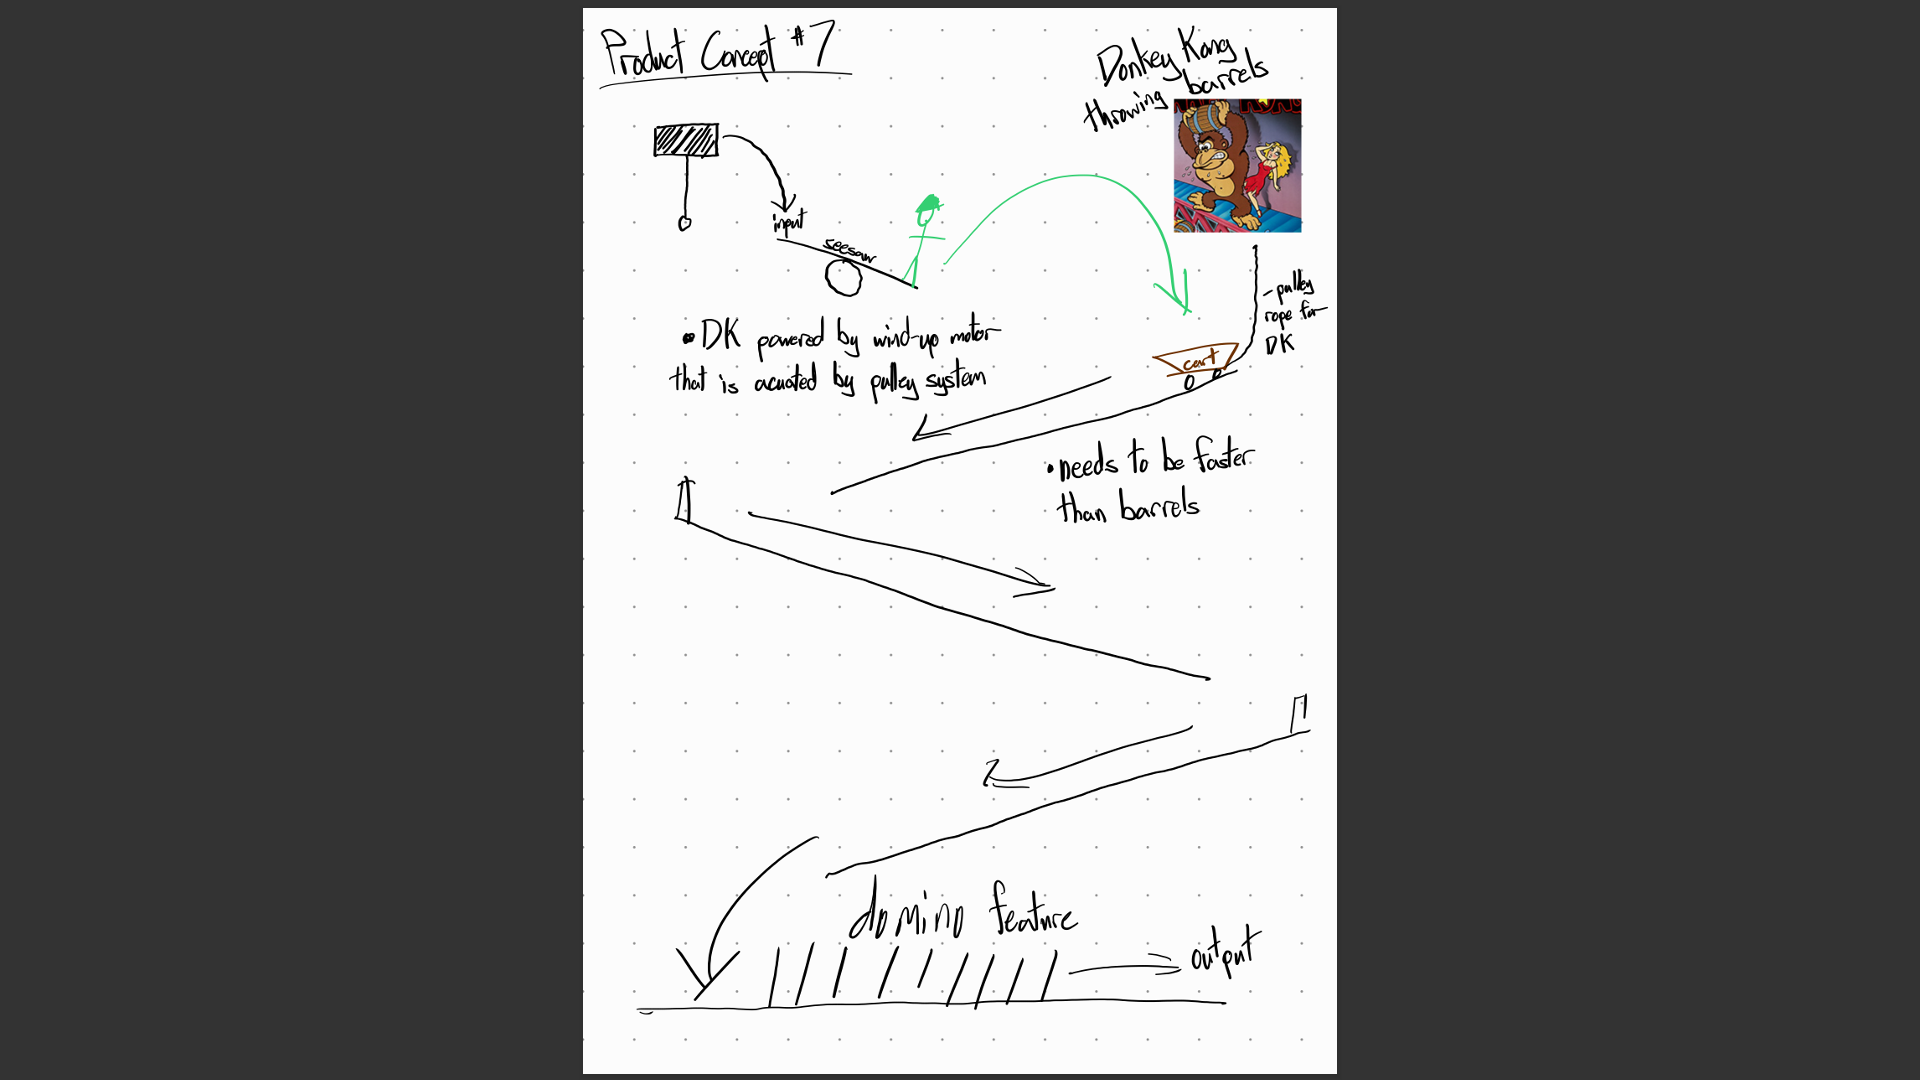 Product Concept #7
Donkey Kong
throwing barrels
input
seesaw
- pulley
rope for
DK
• DK powered by wind-up motor
that is acuated by pulley system
cart
• needs to be faster
than barrels
domino feature
output